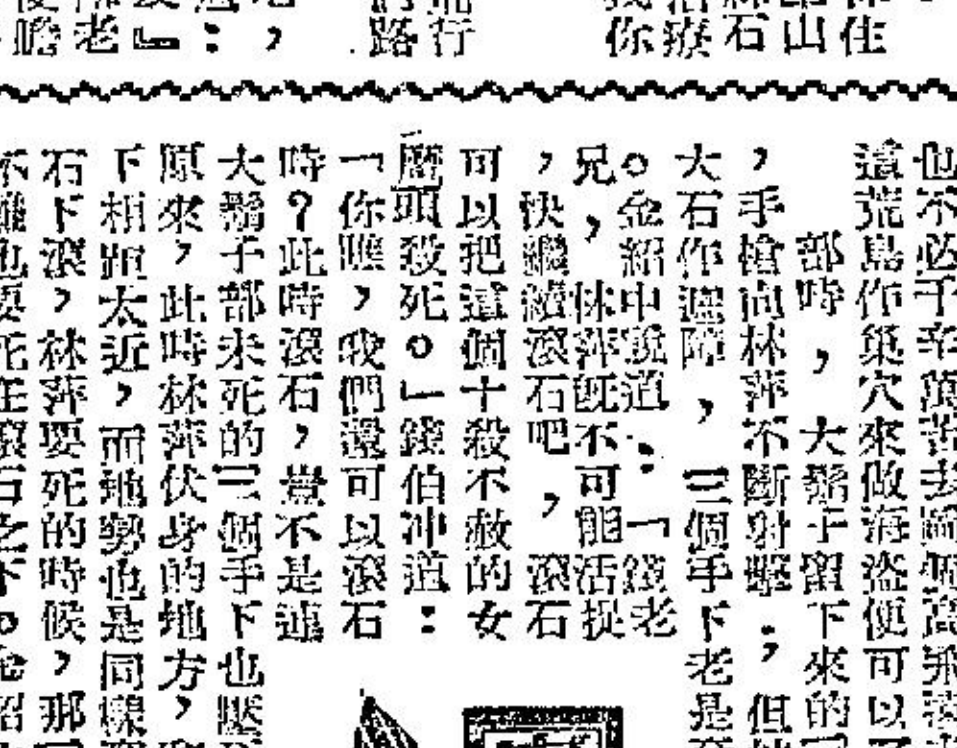 你瘊石山住
路行
，
老』：
也不必千辛萬苦去個
這荒島作巢穴來做海盜便可以
部時，大鬍子留下來的
，手槍向林萍不斷射擊；但
大石作遮障，三個手下老是
。金紹中說道：「錢老
兄，林萍旣不可能活捉
，快繼續滾石吧，滾石
可以把這個十殺不赦的女
魔頭殺死。」錢伯冲道：
「你瞧，我們還可以滾石
時？此時滾石，豈不是連
大鬍子部未死的三個手下也壓
原來，此時林萍伏身的地方，
下相距太近，而地勢也是同樣
石下滾，林萍要死的時候，那
不難也要死在滾石之下。金紹